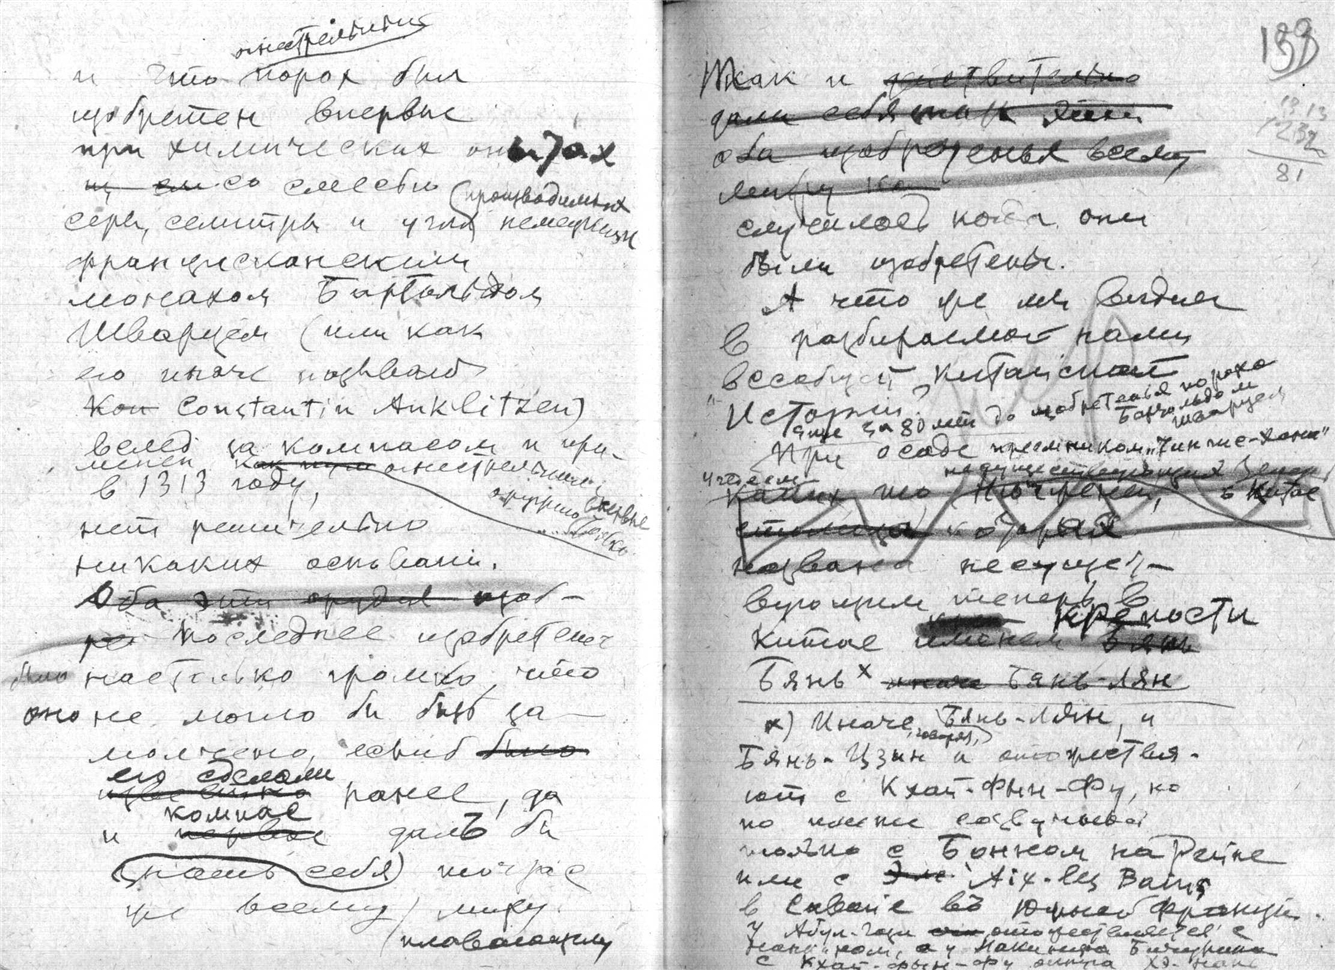 огнестрельный
и что порох был
изобретен впервые
при химических опытах
со смесью
(производимых
серы, селитры и угля немецким
францисканским
монахом Бартольдом
Шварцем (или как
его иначе называют
Constantin Anklitzen)
вслед за компасом и при-
менен как огнестрельное
оружие впервые
в 1313 году,
нет решительно
никаких оснований.
Оба эти орудия изоб-
ре Последнее изобретение
было настолько громко, что
оно не могло бы быть за-
молчено, если б было
его сделали
известно ранее, да
компас
и первое далъ бы
(знать себя) тотчас
же всему миру.
(плавающему
133
Как и действительно
дали себя знать эти
оба изобретенья всему
миру ка
случилось когда они
были изобретены.
А что же мы видим
в разбираемой нами
всеобщей "Китайской
Истории"?
еще за 80 лет до изобретенья пороха
Бартольдом
Шварцем
При осаде преемником "Чингис-Хана"
в Китае
которая
названа несущест-
вующим теперь в
Китае именем крепости Бянь
Бянь x иначе Бянь-Лян
x) Иначе, говорят, Бянь-Лян, и
Бянь-Цзин и отожествля-
ют с Кхай-Фын-Фу, но
по имени созвучный
только с Бонном на Рейне
или с Aix-les Bains
в Савойе въ Южной Франции.
У Абул-Гази отожествляется с
с Кхай-фын-фу